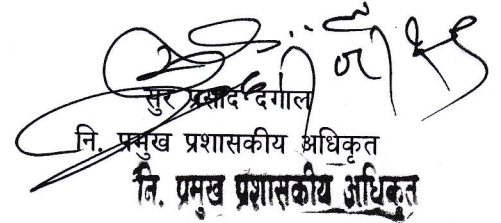 सुर प्रसाद दगाल
नि. प्रमुख प्रशासकीय अधिकृत
नि. प्रमुख प्रशासकीय अधिकृत